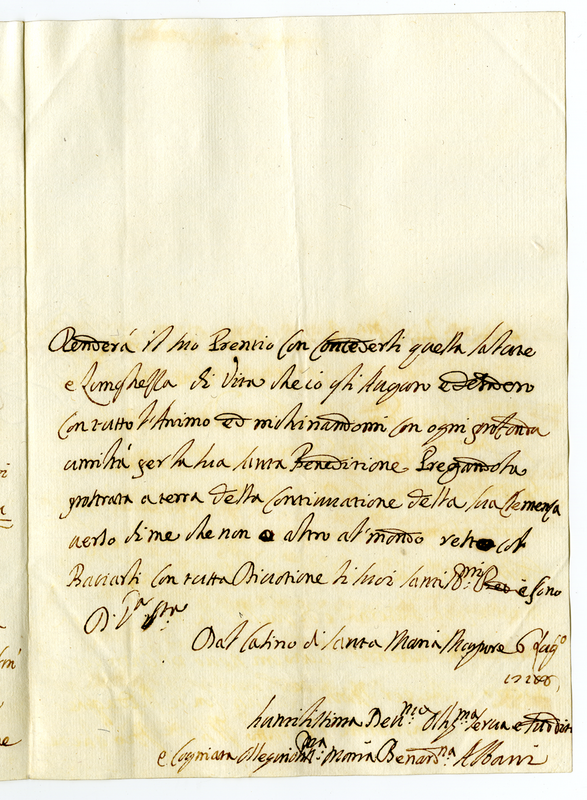 Renderá il suo Premio con concederli quella salute
e Longhessa di Vita che io gli Auguro e desidero
con tutto l'Animo ed inchinandomi con ogni profonda
umiltá per la sua santa Beneditione Pregandola
prostrata a terra della Continuatione della sua Clemensa
verso di me che non o altro al mondo resto col
Baciarli con tutta Divotione li suoi santi.mi Piedi e sono
Di V.a S.ta
Dal Casino di santa Maria Magiore 6 Lug.o
humilissima Dev.ma Obli.ma serva e suddita
e Cogniata Maria Bernar.na Albani